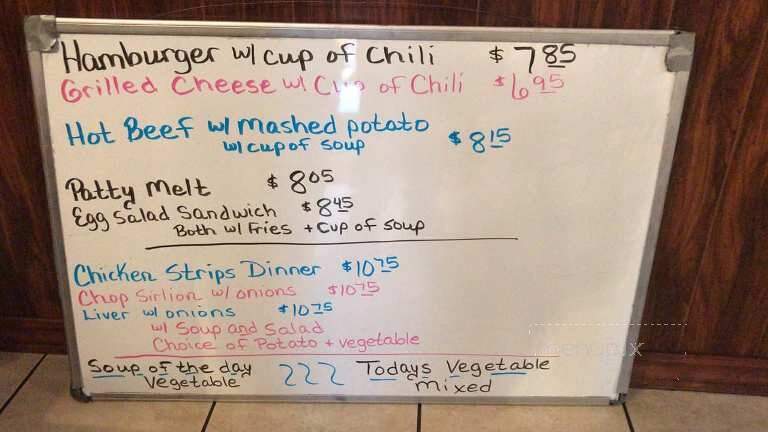 Hamburger w/ cup of chili $7 85
Grilled Cheese w/ Cup of Chili $6 95
Hot Beef w/ mashed potato $8 15
w/ cup of soup
Patty Melt $8 05
Egg Salad Sandwich $8 45
Both w/ Fries + Cup of Soup
Chicken Strips Dinner $10 75
Chop Sirlion w/ onions $10 75
Liver w/ onions $10 75
w/ Soup and Salad
Choice of Potato + vegetable
Soup of the day Todays Vegetable
Vegetable mixed